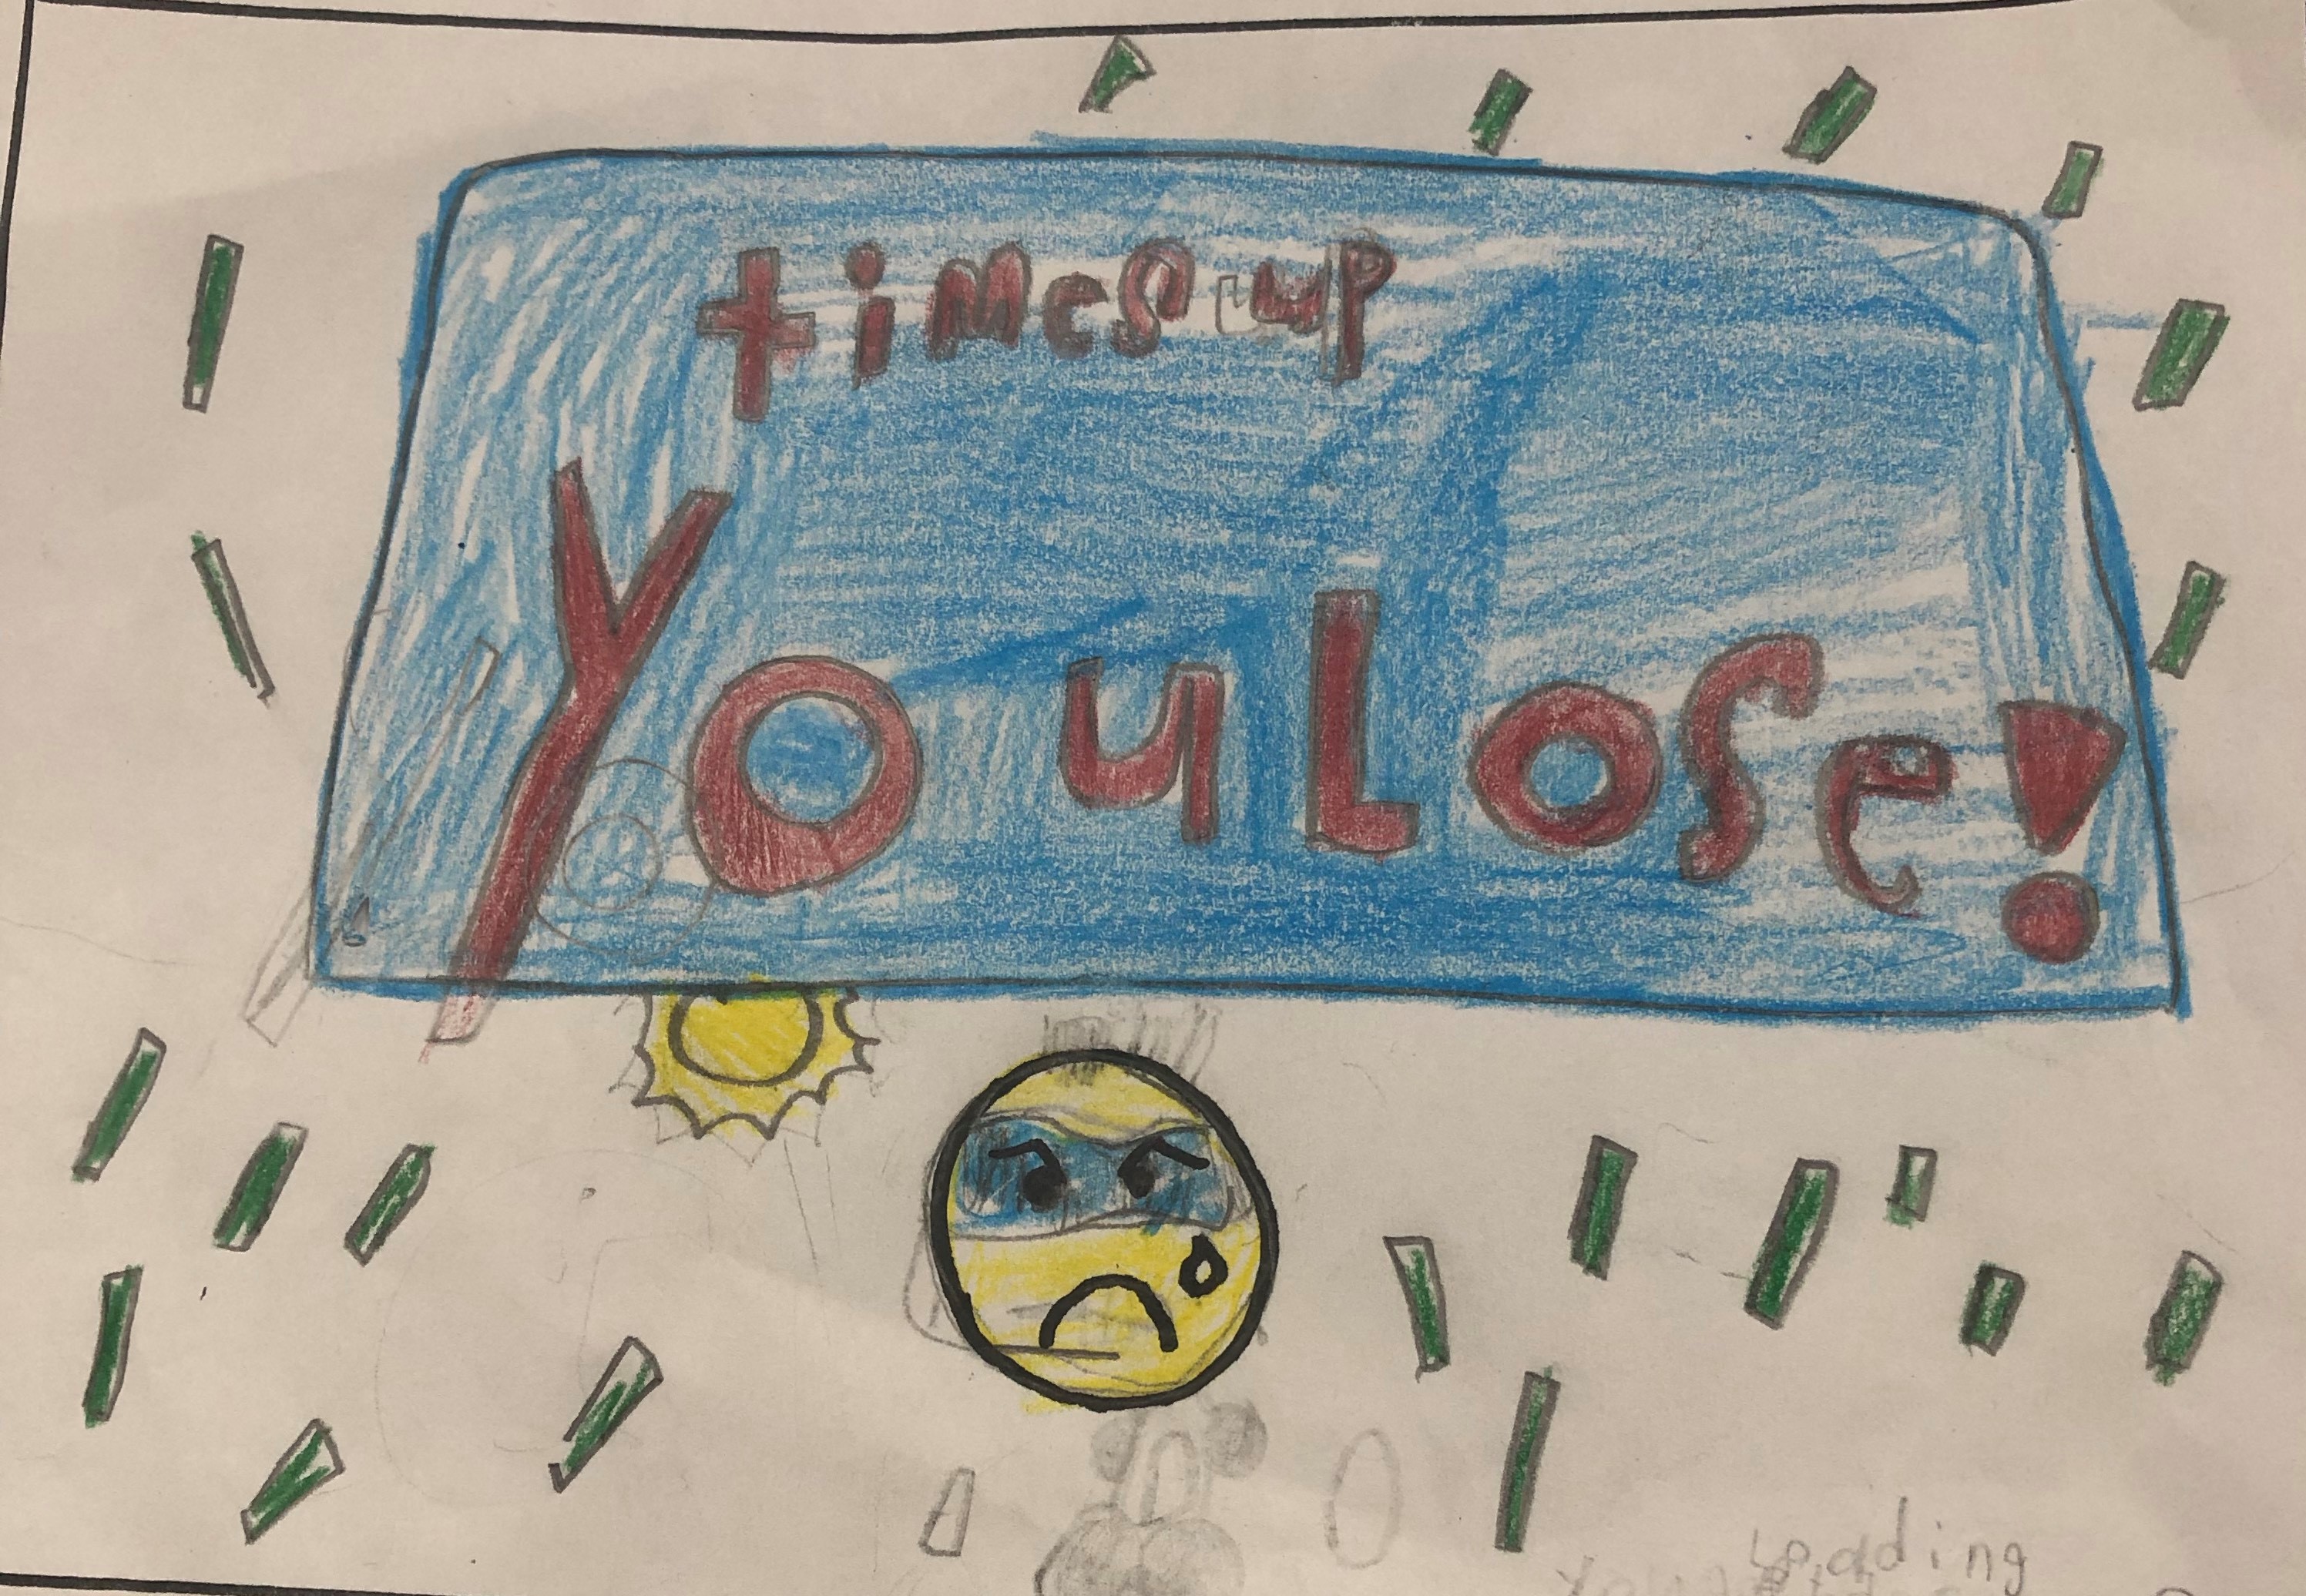 times up
You Lose!
Loading